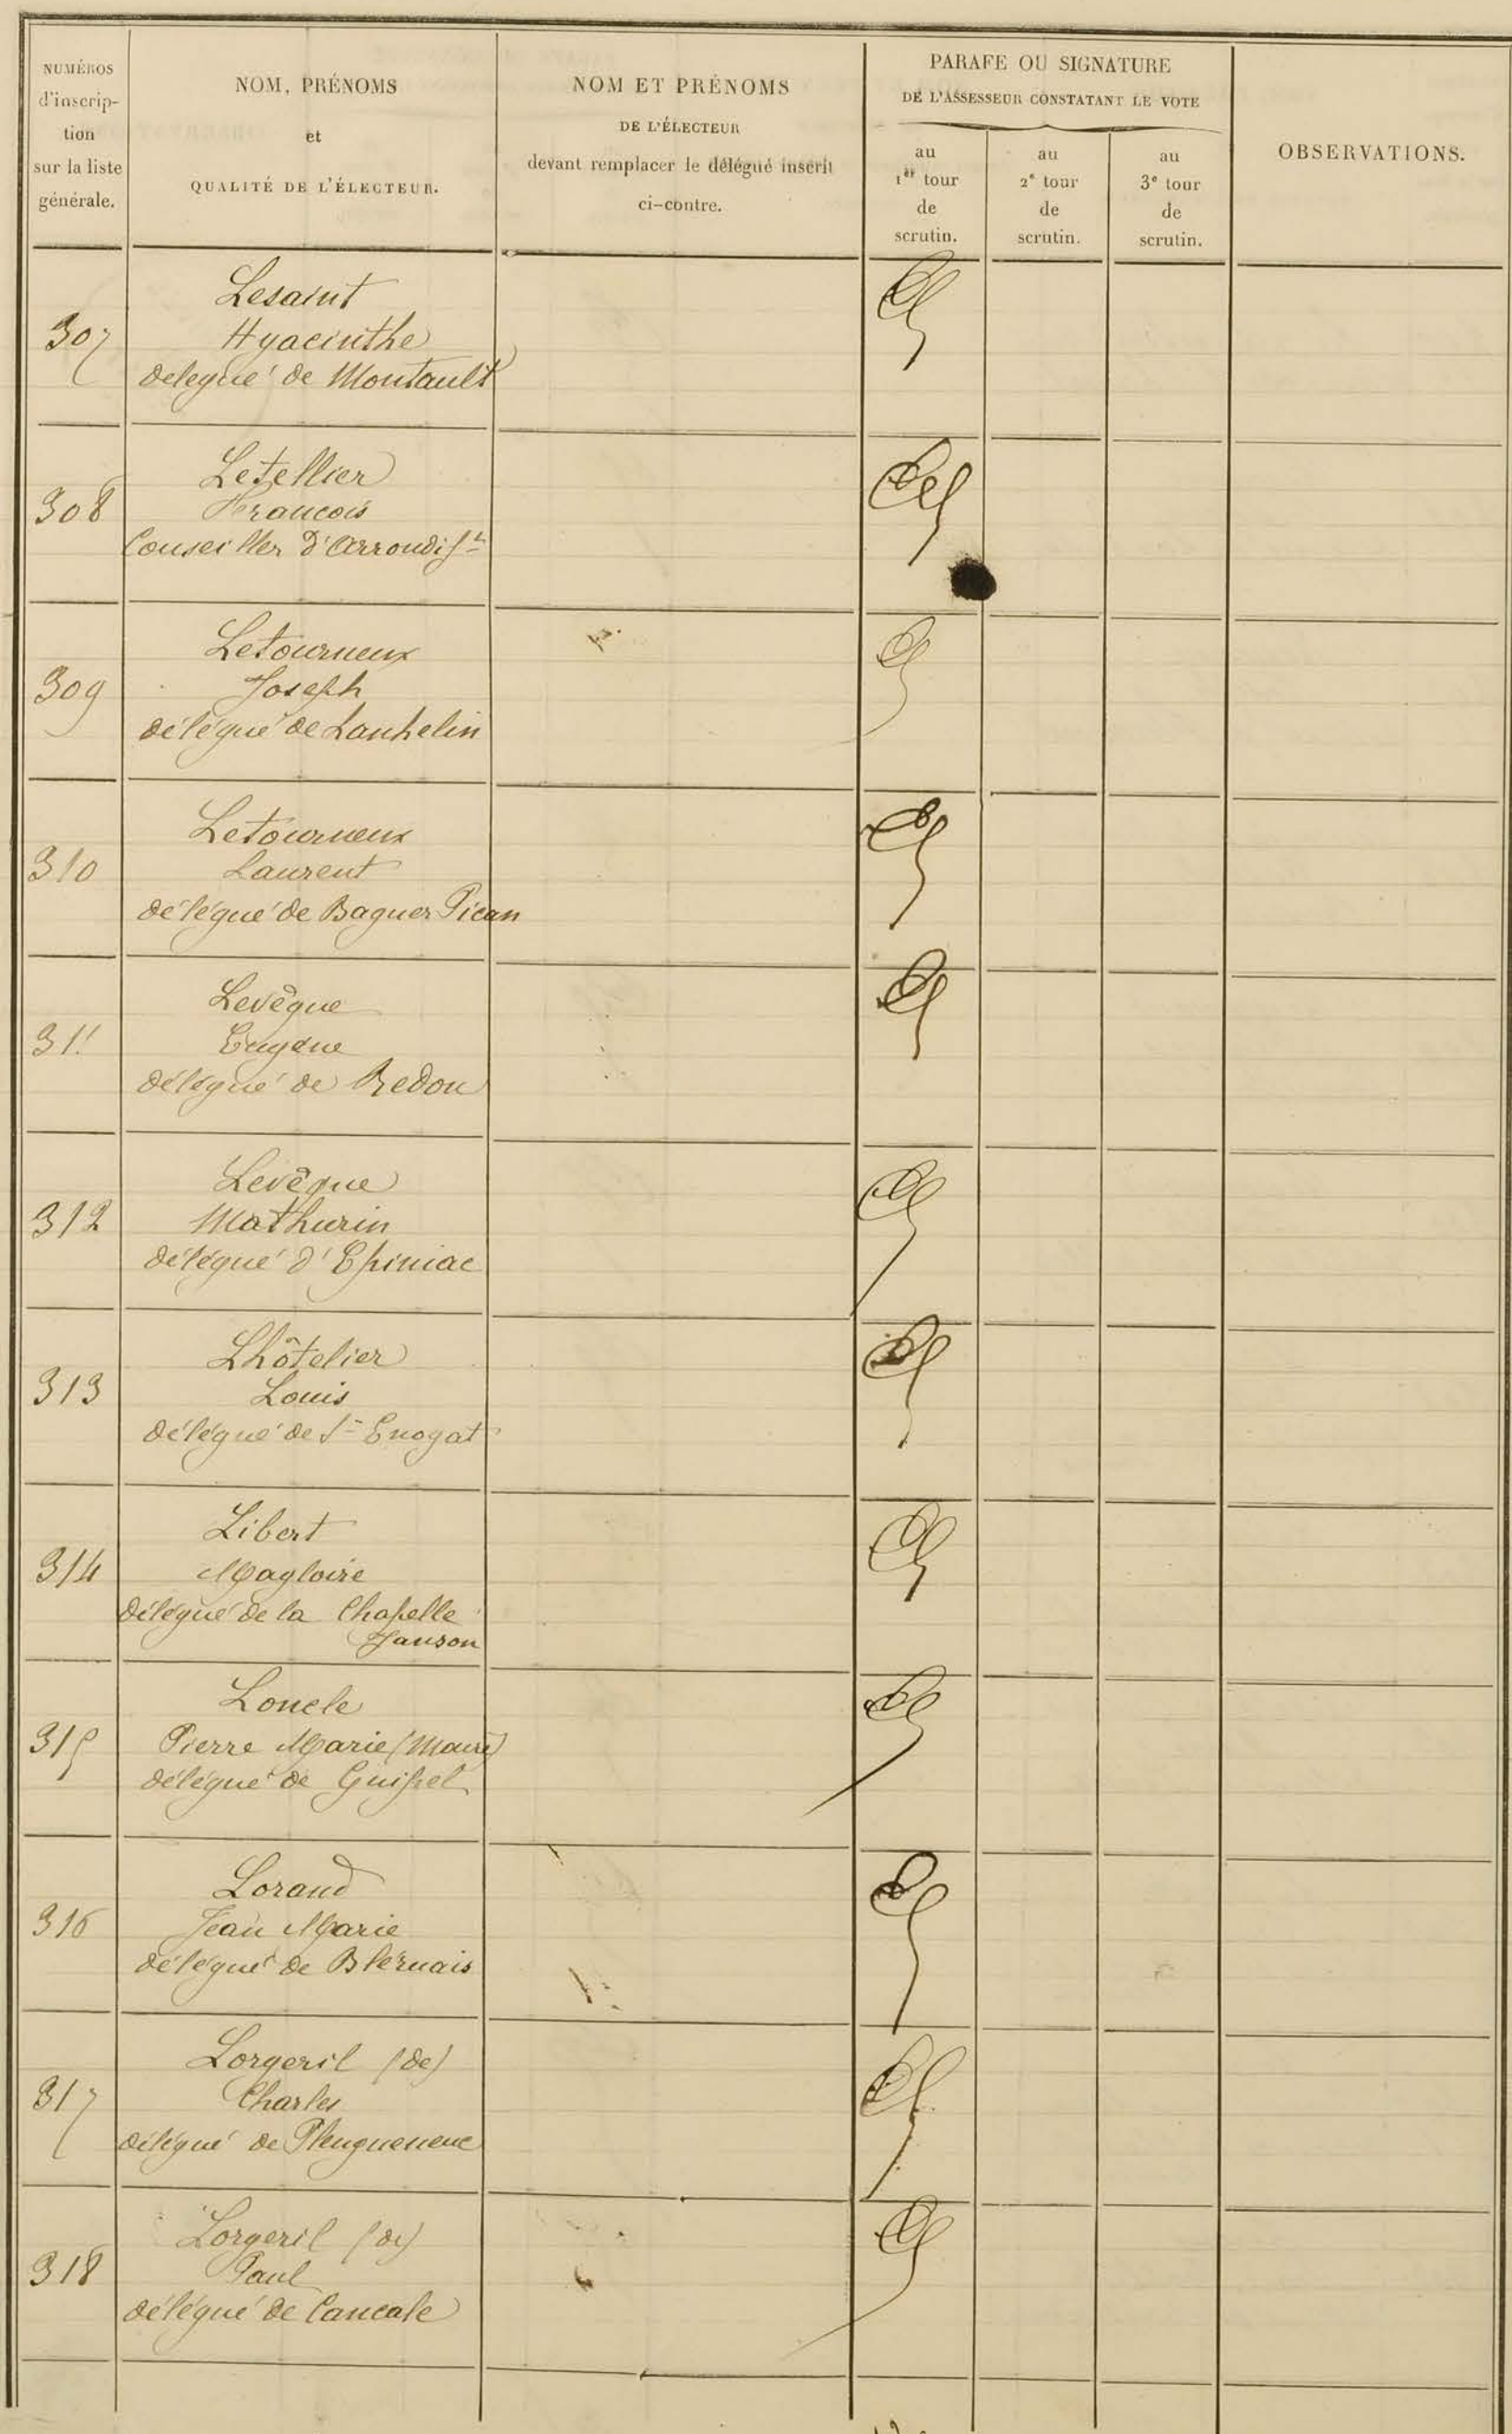 NUMÉROS
d'inscrip-
tion
sur la liste
générale.
NOM, PRÉNOMS
et
QUALITÉ DE L'ÉLECTEUR.
NOM ET PRÉNOMS
DE L'ÉLECTEUR
devant remplacer le délégué inscrit
ci-contre.
PARAFE OU SIGNATURE
DE L'ASSESSEUR CONSTATANT LE VOTE
au
1er tour
de
scrutin.
au
2e tour
de
scrutin.
au
3e tour
de
scrutin.
OBSERVATIONS.
307
Lesaint
Hyacinthe
délégué de Montault
308
Letellier
Francois
Conseiller d'Arrondisst
309
Letourneux
Joseph
délégué de Lanhelin
310
Letourneux
Laurent
délégué de Baguer Pican
311
Levêque
Eugène
délégué de Redon
312
Levêque
Mathurin
délégué d'Epiniac
313
Lhôtelier
Louis
délégué de St Enogat
314
Libert
Magloire
délégué de la Chapelle
Janson
315
Loncle
Pierre Marie (Maire)
délégué de Guipel
316
Lorand
Jean Marie
délégué de Bléruais
317
Lorgeril (de)
Charles
délégué de Pleugueneuc
318
Lorgeril (de)
Paul
délégué de Cancale